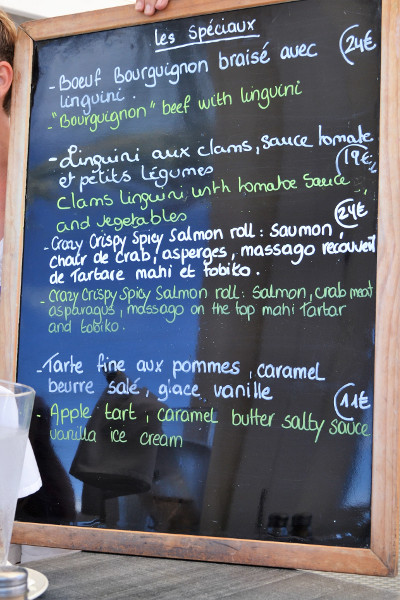 Les Spéciaux
- Boeuf Bourguignon braisé avec 24€
linguini.
- "Bourguignon" beef with linguini
- Linguini aux clams, sauce tomate
et petits légumes 19€
Clams linguini with tomatoe sauce
and vegetables 24€
- Crazy Crispy Spicy Salmon roll : Saumon,
chair de crab, asperges, massago recouvert
de tartare mahi et tobiko.
- Crazy Crispy Spicy Salmon roll : Salmon, crab meat
asparagus, massago on the top mahi tartar
and tobiko.
- Tarte fine aux pommes, caramel
beurre salé, glace vanille 11€
- Apple tart, caramel butter salty sauce
vanilla ice cream